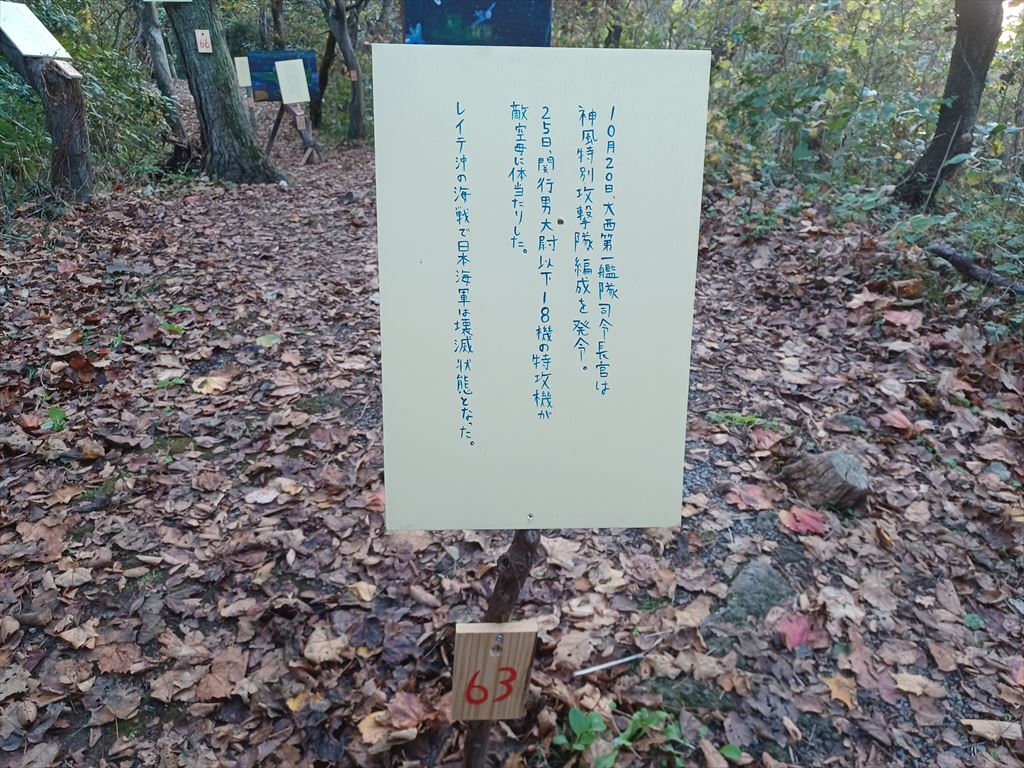 10月20日、大西第一艦隊司令長官は
神風特別攻撃隊編成を発令。
25日、関行男大尉以下18機の特攻機が
敵空母に体当たりした。
レイテ沖の海戦で日本海軍は壊滅状態となった。
63
66